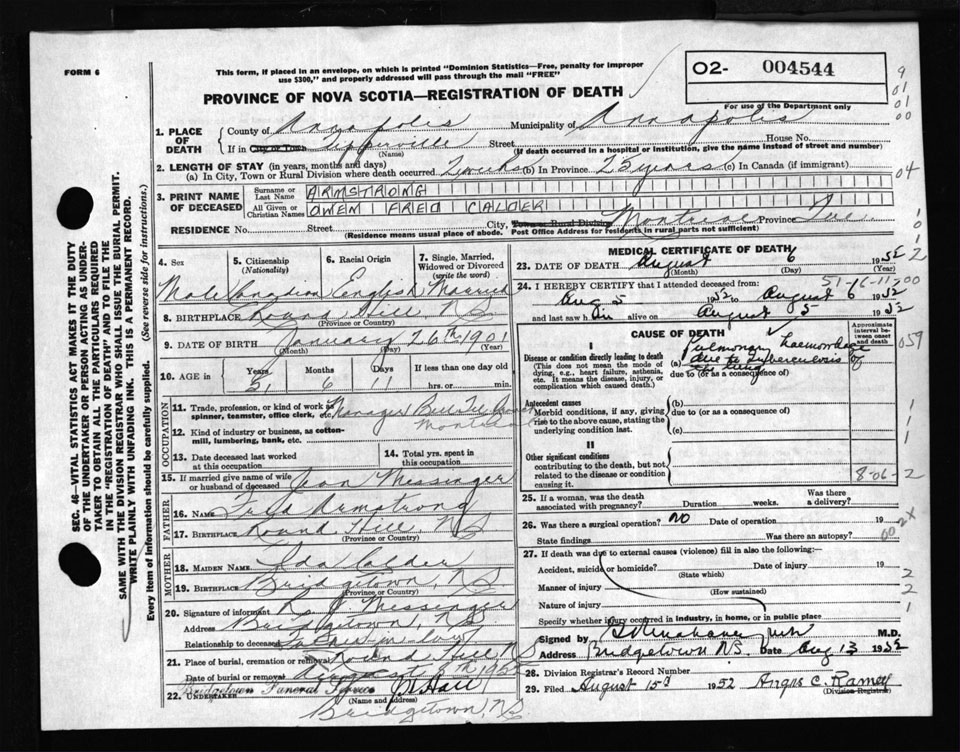 FORM 6
This form, if placed in an envelope, on which is printed "Dominion Statistics—Free, penalty for improper
use $300," and properly addressed will pass through the mail "FREE"
O2- 004544
For use of the Department only
9
01
01
00
PROVINCE OF NOVA SCOTIA—REGISTRATION OF DEATH
1. PLACE OF DEATH
County of Annapolis Municipality of Annapolis
If in City or Town Upperville Street House No.
(Name) (If death occurred in a hospital or institution, give the name instead of street and number)
2. LENGTH OF STAY (in years, months and days)
(a) In City, Town or Rural Division where death occurred 2 weeks (b) In Province 25 years (c) In Canada (if immigrant)
04
3. PRINT NAME OF DECEASED
Surname or Last Name ARMSTRONG
All Given or Christian Names OWEN FRED CALDER
RESIDENCE No. Street City, Town or Rural Division Montreal Province Que
(Residence means usual place of abode. Post Office Address for residents in rural parts not sufficient)
4. Sex 5. Citizenship (Nationality) 6. Racial Origin 7. Single, Married, Widowed or Divorced (write the word)
Male Canadian English Married
8. BIRTHPLACE Round Hill, NS
(Province or Country)
9. DATE OF BIRTH January 26th 1901
(Month) (Day) (Year)
10. AGE in Years Months Days If less than one day old
51 6 11 hrs. or min.
OCCUPATION
11. Trade, profession, or kind of work as spinner, teamster, office clerk, etc. Manager Bell Tel
Montreal
12. Kind of industry or business, as cotton-mill, lumbering, bank, etc.
13. Date deceased last worked at this occupation
14. Total yrs. spent in this occupation
15. If married give name of wife or husband of deceased Jean Messinger
FATHER
16. NAME Fred Armstrong
17. BIRTHPLACE Round Hill, NS
(Province or Country)
MOTHER
18. MAIDEN NAME Ida Calder
19. BIRTHPLACE Bridgetown, NS
(Province or Country)
20. Signature of informant Messinger
Address Bridgetown, NS
Relationship to deceased Father-in-law
21. Place of burial, cremation or removal Round Hill, NS
Date of burial or removal August 8th 1952
22. UNDERTAKER Bridgetown Funeral Service Hall
(Name and address)
Bridgetown, NS
MEDICAL CERTIFICATE OF DEATH
23. DATE OF DEATH August 6 1952
(Month) (Day) (Year)
51-6-11
24. I HEREBY CERTIFY that I attended deceased from:
Aug 5 1952 to August 6 1952
and last saw h im alive on August 5 1952
CAUSE OF DEATH
Approximate interval between onset and death
059
I
Disease or condition directly leading to death
(This does not mean the mode of dying, e.g., heart failure, asthenia, etc. It means the disease, injury, or complication which caused death.)
Pulmonary haemorrhage
(a) due to tuberculosis of
due to (or as a consequence of)
the lung
Antecedent causes
Morbid conditions, if any, giving rise to the above cause, stating the underlying condition last.
(b)
due to (or as a consequence of)
(c)
II
Other significant conditions
contributing to the death, but not related to the disease or condition causing it.
8-06-2
25. If a woman, was the death associated with pregnancy? Duration weeks. Was there a delivery?
26. Was there surgical operation? No Date of operation 19
State findings Was there an autopsy?
27. If death was due to external causes (violence) fill in also the following:
Accident, suicide or homicide? Date of injury 19
(State which)
Manner of injury
(How sustained)
Nature of injury
Specify whether injury occurred in industry, in home, or in public place
Signed by M.D.
Address Bridgetown NS. Date Aug 13 1952
28. Division Registrar's Record Number
29. Filed August 15 1952 Angus C. Ramey
(Division Registrar)
SEC. 46—VITAL STATISTICS ACT MAKES IT THE DUTY
OF THE UNDERTAKER OR PERSON ACTING AS UNDER-
TAKER TO OBTAIN ALL THE PARTICULARS REQUIRED
IN THE "REGISTRATION OF DEATH" AND TO FILE THE
SAME WITH THE DIVISION REGISTRAR WHO SHALL ISSUE THE BURIAL PERMIT.
WRITE PLAINLY WITH UNFADING INK. THIS IS A PERMANENT RECORD.
Every item of information should be carefully supplied. (See reverse side for instructions.)